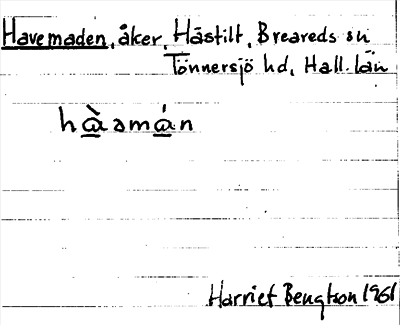 Havemaden, åker, Hästilt, Breareds sn
Tönnersjö hd, Hall. län
hàəmán
Harriet Bengtson 1961